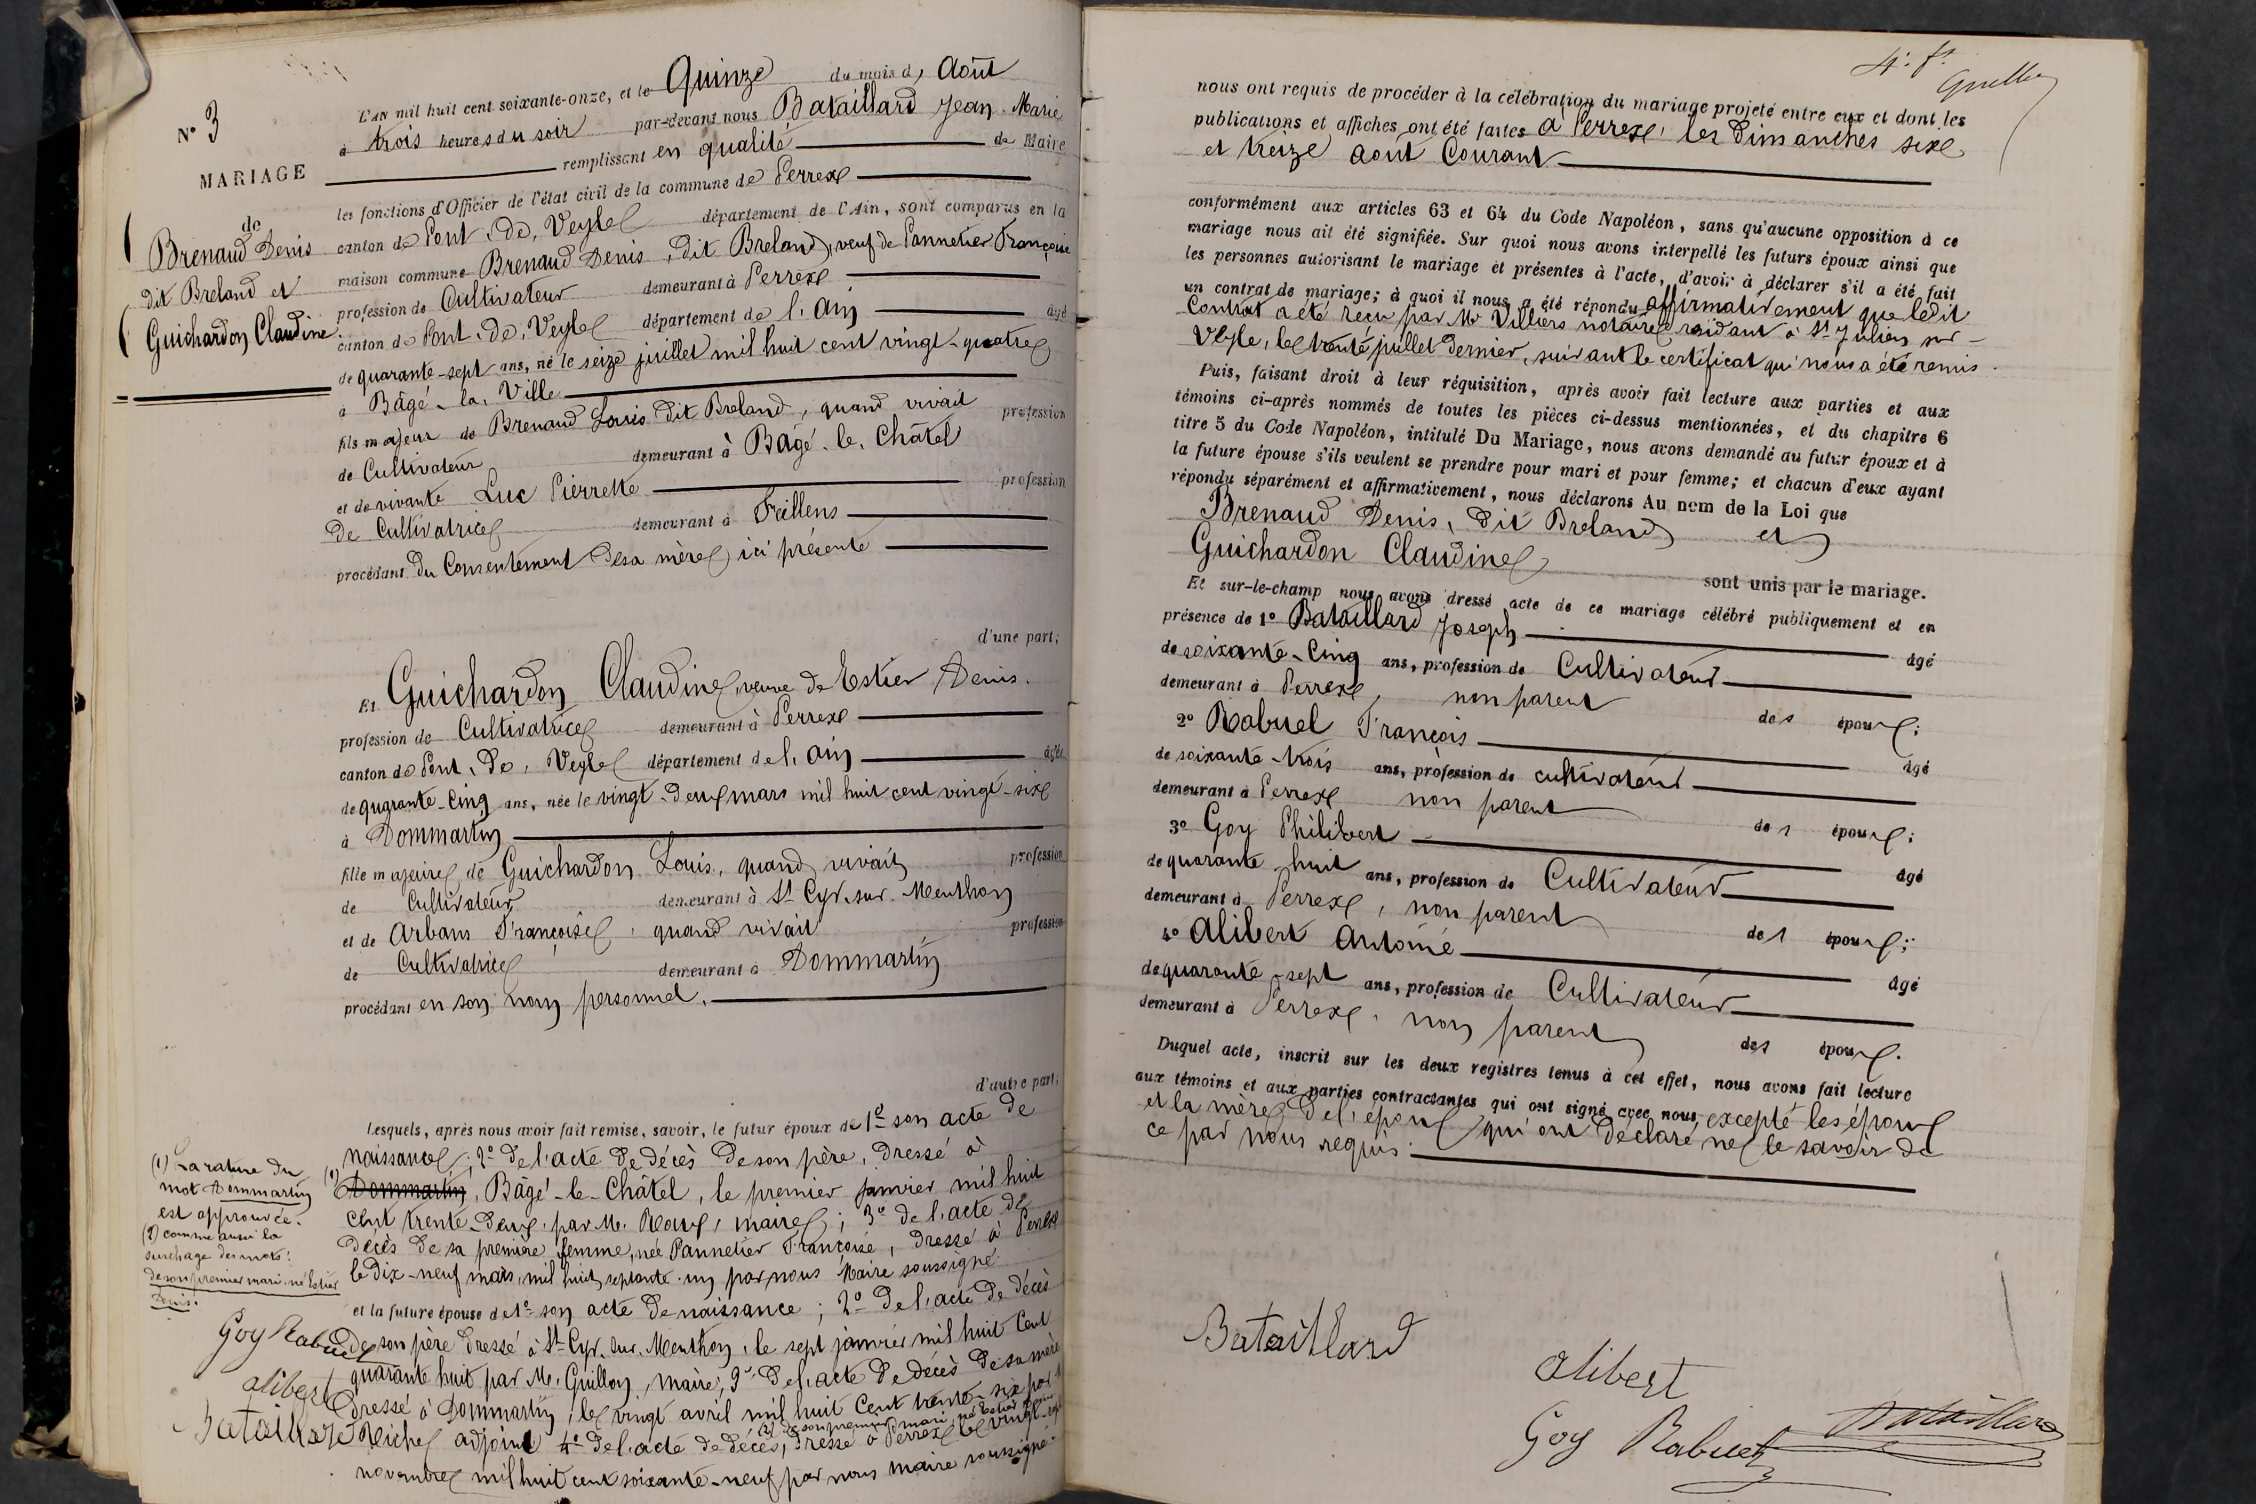 N° 3
MARIAGE
de
Brenaud Denis
dit Breland et
Guichardon Claudine
L'AN mil huit cent soixante-onze, et le Quinze du mois d, Août
à trois heures du soir par-devant nous Bataillard Jean-Marie
remplissant en qualité de Maire
les fonctions d'Officier de l'état civil de la commune de Perrex
canton de Pont-de-Veyle département de l'Ain, sont comparus en la
maison commune Brenaud Denis, dit Breland, veuf de Pannetier Françoise
profession de Cultivateur demeurant à Perrex
canton de Pont-de-Veyle département de l'Ain âgé
de quarante-sept ans, né le seize juillet mil huit cent vingt-quatre
à Bâgé-la-Ville
fils majeur de Brenaud Louis dit Breland, quand vivait profession
de Cultivateur demeurant à Bâgé-le-Châtel
et de vivante Luc Pierrette profession
de Cultivatrice demeurant à Feillens
procédant du Consentement de sa mère, ici présente
d'une part;
Et Guichardon Claudine, veuve de Estier Denis.
profession de Cultivatrice demeurant à Perrex
canton de Pont-de-Veyle département de l'Ain âgée
de quarante-cinq ans, née le vingt-deux mars mil huit cent vingt-six
à Dommartin
fille majeure de Guichardon Louis, quand vivait profession
de Cultivateur demeurant à St Cyr-sur-Menthon
et de Arbans Françoise, quand vivait profession
de Cultivatrice demeurant à Dommartin
procédant en son nom personnel.
d'autre part;
Lesquels, après nous avoir fait remise, savoir, le futur époux de 1° son acte de
naissance; 2° de l'acte de décès de son père, dressé à
(1) Dommartin, Bâgé-le-Châtel, le premier janvier mil huit
cent trente-deux, par M. Roux, maire; 3° de l'acte de
décès de sa première femme, née Pannetier Françoise, dressé à Perrex
le dix-neuf mars, mil huit septante-un par nous Maire soussigné
et la future épouse de 1° son acte de naissance; 2° de l'acte de décès
de son père dressé à St Cyr-sur-Menthon, le sept janvier mil huit cent
quarante huit par M. Guillon, maire; 3° de l'acte de décès de sa mère
dressé à Dommartin, le vingt avril mil huit cent trente-six par M.
(2) de son premier mari, né Estier Denis
Reiche adjoint 4° de l'acte de décès, dressé à Perrex le vingt-sept
novembre mil huit cent soixante-neuf par nous maire soussigné.
(1) La rature du
mot Dommartin
est approuvée.
(2) comme aussi la
surchage des mots:
de son premier mari, né Estier
Denis.
Goy Rabuel
alibert
Bataillard
4e f.
nous ont requis de procéder à la célébration du mariage projeté entre eux et dont les
publications et affiches ont été faites à Perrex, les Dimanches six
et treize août Courant
conformément aux articles 63 et 64 du Code Napoléon, sans qu'aucune opposition à ce
mariage nous ait été signifiée. Sur quoi nous avons interpellé les futurs époux ainsi que
les personnes autorisant le mariage et présentes à l'acte, d'avoir à déclarer s'il a été fait
un contrat de mariage; à quoi il nous a été répondu affirmativement que ledit
Contrat a été reçu par Me Villiers notaire résidant à St Julien sur-
Veyle, le trente juillet dernier, suivant le certificat qui nous a été remis.
Puis, faisant droit à leur réquisition, après avoir fait lecture aux parties et aux
témoins ci-après nommés de toutes les pièces ci-dessus mentionnées, et du chapitre 6
titre 5 du Code Napoléon, intitulé Du Mariage, nous avons demandé au futur époux et à
la future épouse s'ils veulent se prendre pour mari et pour femme; et chacun d'eux ayant
répondu séparément et affirmativement, nous déclarons Au nom de la Loi que
Brenaud Denis, dit Breland et
Guichardon Claudine
sont unis par le mariage.
Et sur-le-champ nous avons dressé acte de ce mariage célébré publiquement et en
présence de 1° Bataillard Joseph âgé
de soixante-cinq ans, profession de Cultivateur
demeurant à Perrex, non parent des époux;
2° Rabuel François âgé
de soixante-trois ans, profession de cultivateur
demeurant à Perrex non parent des époux;
3° Goy Philibert âgé
de quarante-huit ans, profession de Cultivateur
demeurant à Perrex, non parent des époux;
4° Alibert Antoine âgé
de quarante-sept ans, profession de Cultivateur
demeurant à Perrex, non parent des époux.
Duquel acte, inscrit sur les deux registres tenus à cet effet, nous avons fait lecture
aux témoins et aux parties contractantes qui ont signé avec nous excepté les époux
et la mère de l'époux qui ont déclaré ne le savoir de
ce par nous requis.
Bataillard
alibert
Goy Rabuel
Bataillard